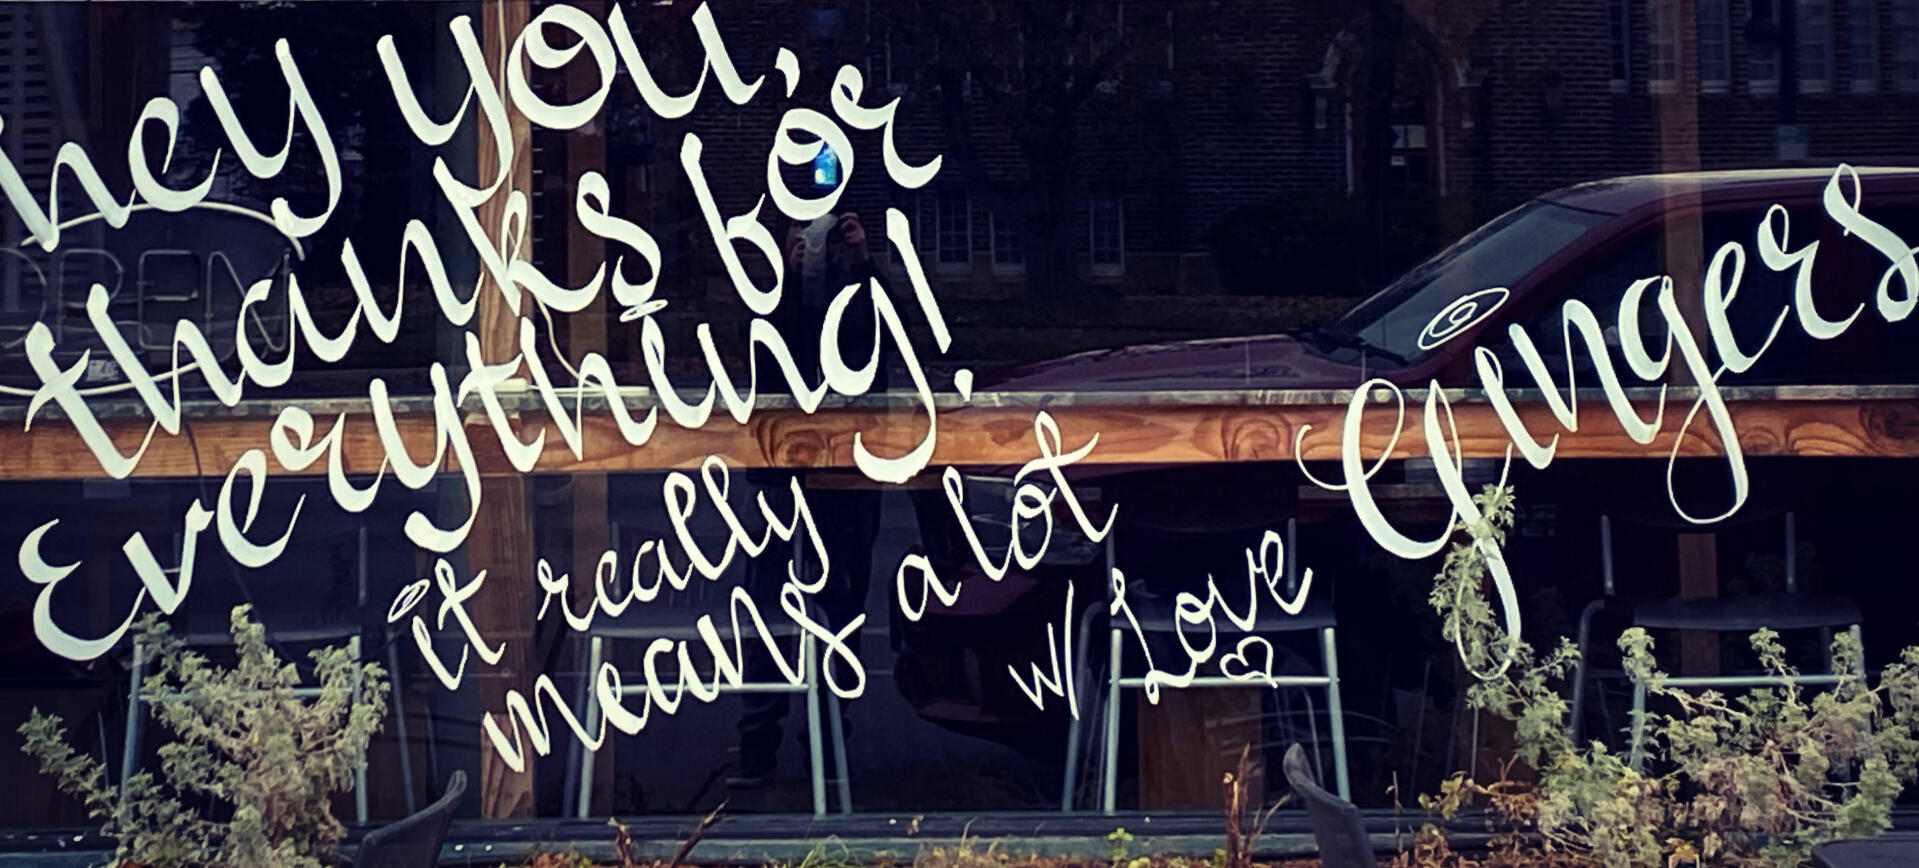 hey you,
thanks for
Everything!
it really
means a lot
w/ Love
Gingers
OPEN